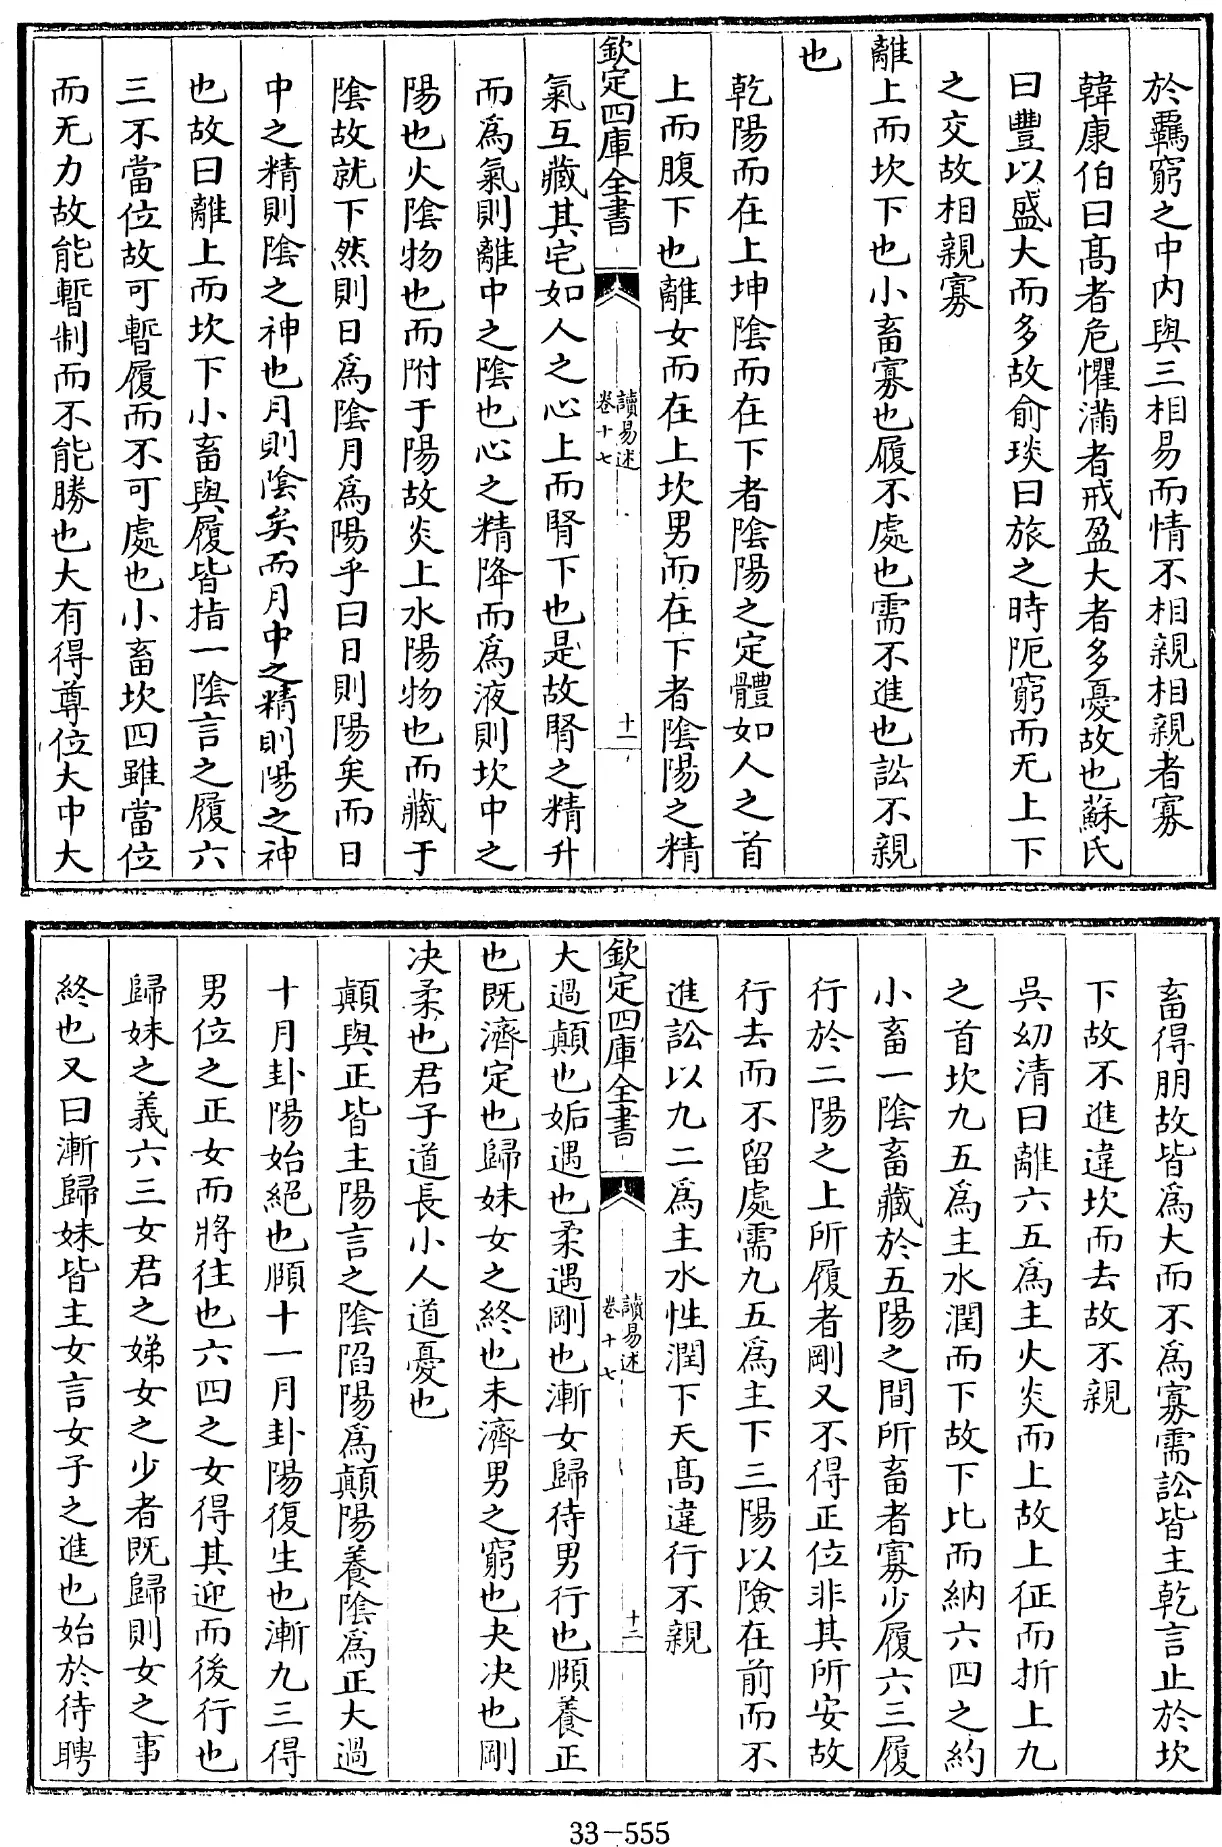 於羈窮之中内與三相易而情不相親相親者寡
韓康伯曰髙者危懼滿者戒盈大者多憂故也蘇氏
曰豐以盛大而多故俞琰曰旅之時阨窮而无上下
之交故相親寡
離上而坎下也小畜寡也履不處也需不進也訟不親
也
乾陽而在上坤陰而在下者陰陽之定體如人之首
上而腹下也離女而在上坎男而在下者陰陽之精
欽定四庫全書
讀易述
卷十七
十一
氣互藏其宅如人之心上而腎下也是故腎之精升
而為氣則離中之陰也心之精降而為液則坎中之
陽也火陰物也而附于陽故炎上水陽物也而藏于
陰故就下然則日為陰月為陽乎曰日則陽矣而日
中之精則陰之神也月則陰矣而月中之精則陽之神
也故曰離上而坎下小畜與履皆指一陰言之履六
三不當位故可暫履而不可處也小畜坎四雖當位
而无力故能暫制而不能勝也大有得尊位大中大
畜得朋故皆為大而不為寡需訟皆主乾言止於坎
下故不進違坎而去故不親
吳幼清曰離六五為主火炎而上故上征而折上九
之首坎九五為主水潤而下故下比而納六四之約
小畜一陰畜藏於五陽之間所畜者寡少履六三履
行於二陽之上所履者剛又不得正位非其所安故
行去而不留處需九五為主下三陽以險在前而不
進訟以九二為主水性潤下天髙違行不親
欽定四庫全書
讀易述
卷十七
十二
大過顛也姤遇也柔遇剛也漸女歸待男行也頤養正
也既濟定也歸妹女之終也未濟男之窮也夬决也剛
决柔也君子道長小人道憂也
顛與正皆主陽言之陰陷陽為顛陽養陰為正大過
十月卦陽始絕也頤十一月卦陽復生也漸九三得
男位之正女而將往也六四之女得其迎而後行也
歸妹之義六三女君之娣女之少者既歸則女之事
終也又曰漸歸妹皆主女言女子之進也始於待聘
33-555